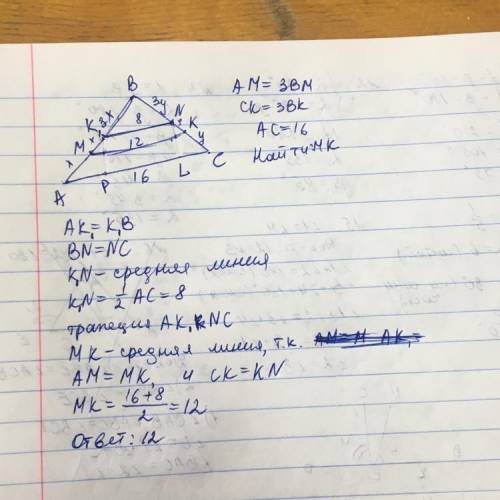 B
3x
3y
K₁
8
N
M
x
12
K
y
x
A
P
16
L
C
AM = 3BM
CK = 3BK
AC = 16
Найти MK
AK₁ = K₁B
BN = NC
K₁N – средняя линия
K₁N = 1/2 AC = 8
трапеция AK₁NC
MK – средняя линия, т.к.
AM = MK₁ и CK = KN
MK = (16+8)/2 = 12
Ответ: 12